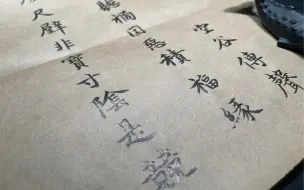 空谷傳聲
聽禍因惡積福緣
尺璧非寶寸陰是競